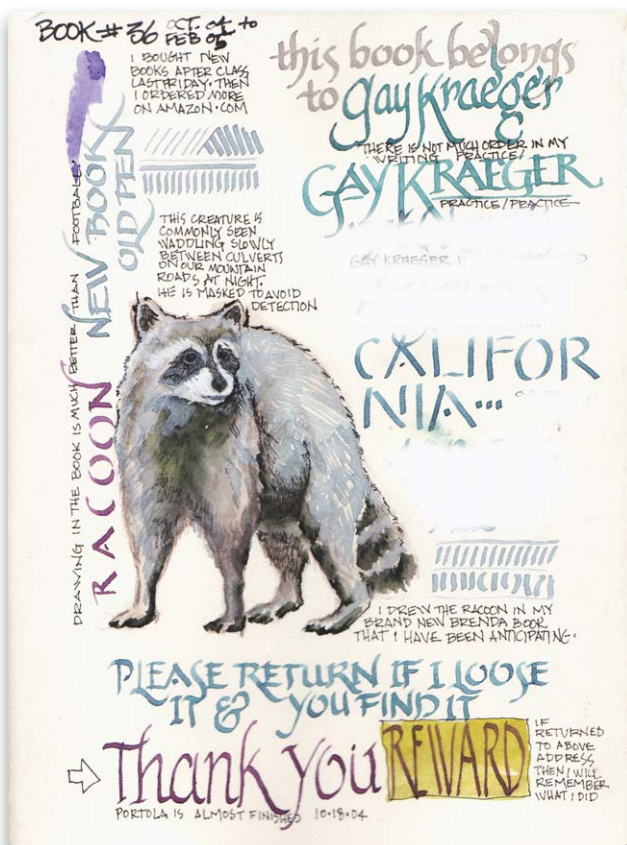 BOOK # 36 OCT. 04 to
FEB 05
I BOUGHT NEW
BOOKS AFTER CLASS
LAST FRIDAY. THEN
I ORDERED MORE
ON AMAZON.COM
this book belongs
to gay kraeger
&
THERE IS NOT MUCH ORDER IN MY
WRITING PRACTICE/
GAY KRAEGER
PRACTICE/PRACTICE
GAY KRAEGER
DRAWING IN THE BOOK IS MUCH BETTER THAN FOOTBALL.
NEW BOOK
OLD PEN
RACOON
THIS CREATURE IS
COMMONLY SEEN
WADDLING SLOWLY
BETWEEN CULVERTS
ON OUR MOUNTAIN
ROADS AT NIGHT.
HE IS MASKED TO AVOID
DETECTION
CALIFOR
NIA...
I DREW THE RACOON IN MY
BRAND NEW BRENDA BOOK
THAT I HAVE BEEN ANTICIPATING.
PLEASE RETURN IF I LOOSE
IT & YOU FIND IT
Thank you REWARD
IF
RETURNED
TO ABOVE
ADDRESS
THEN I WILL
REMEMBER
WHAT I DID
PORTOLA IS ALMOST FINISHED 10.18.04